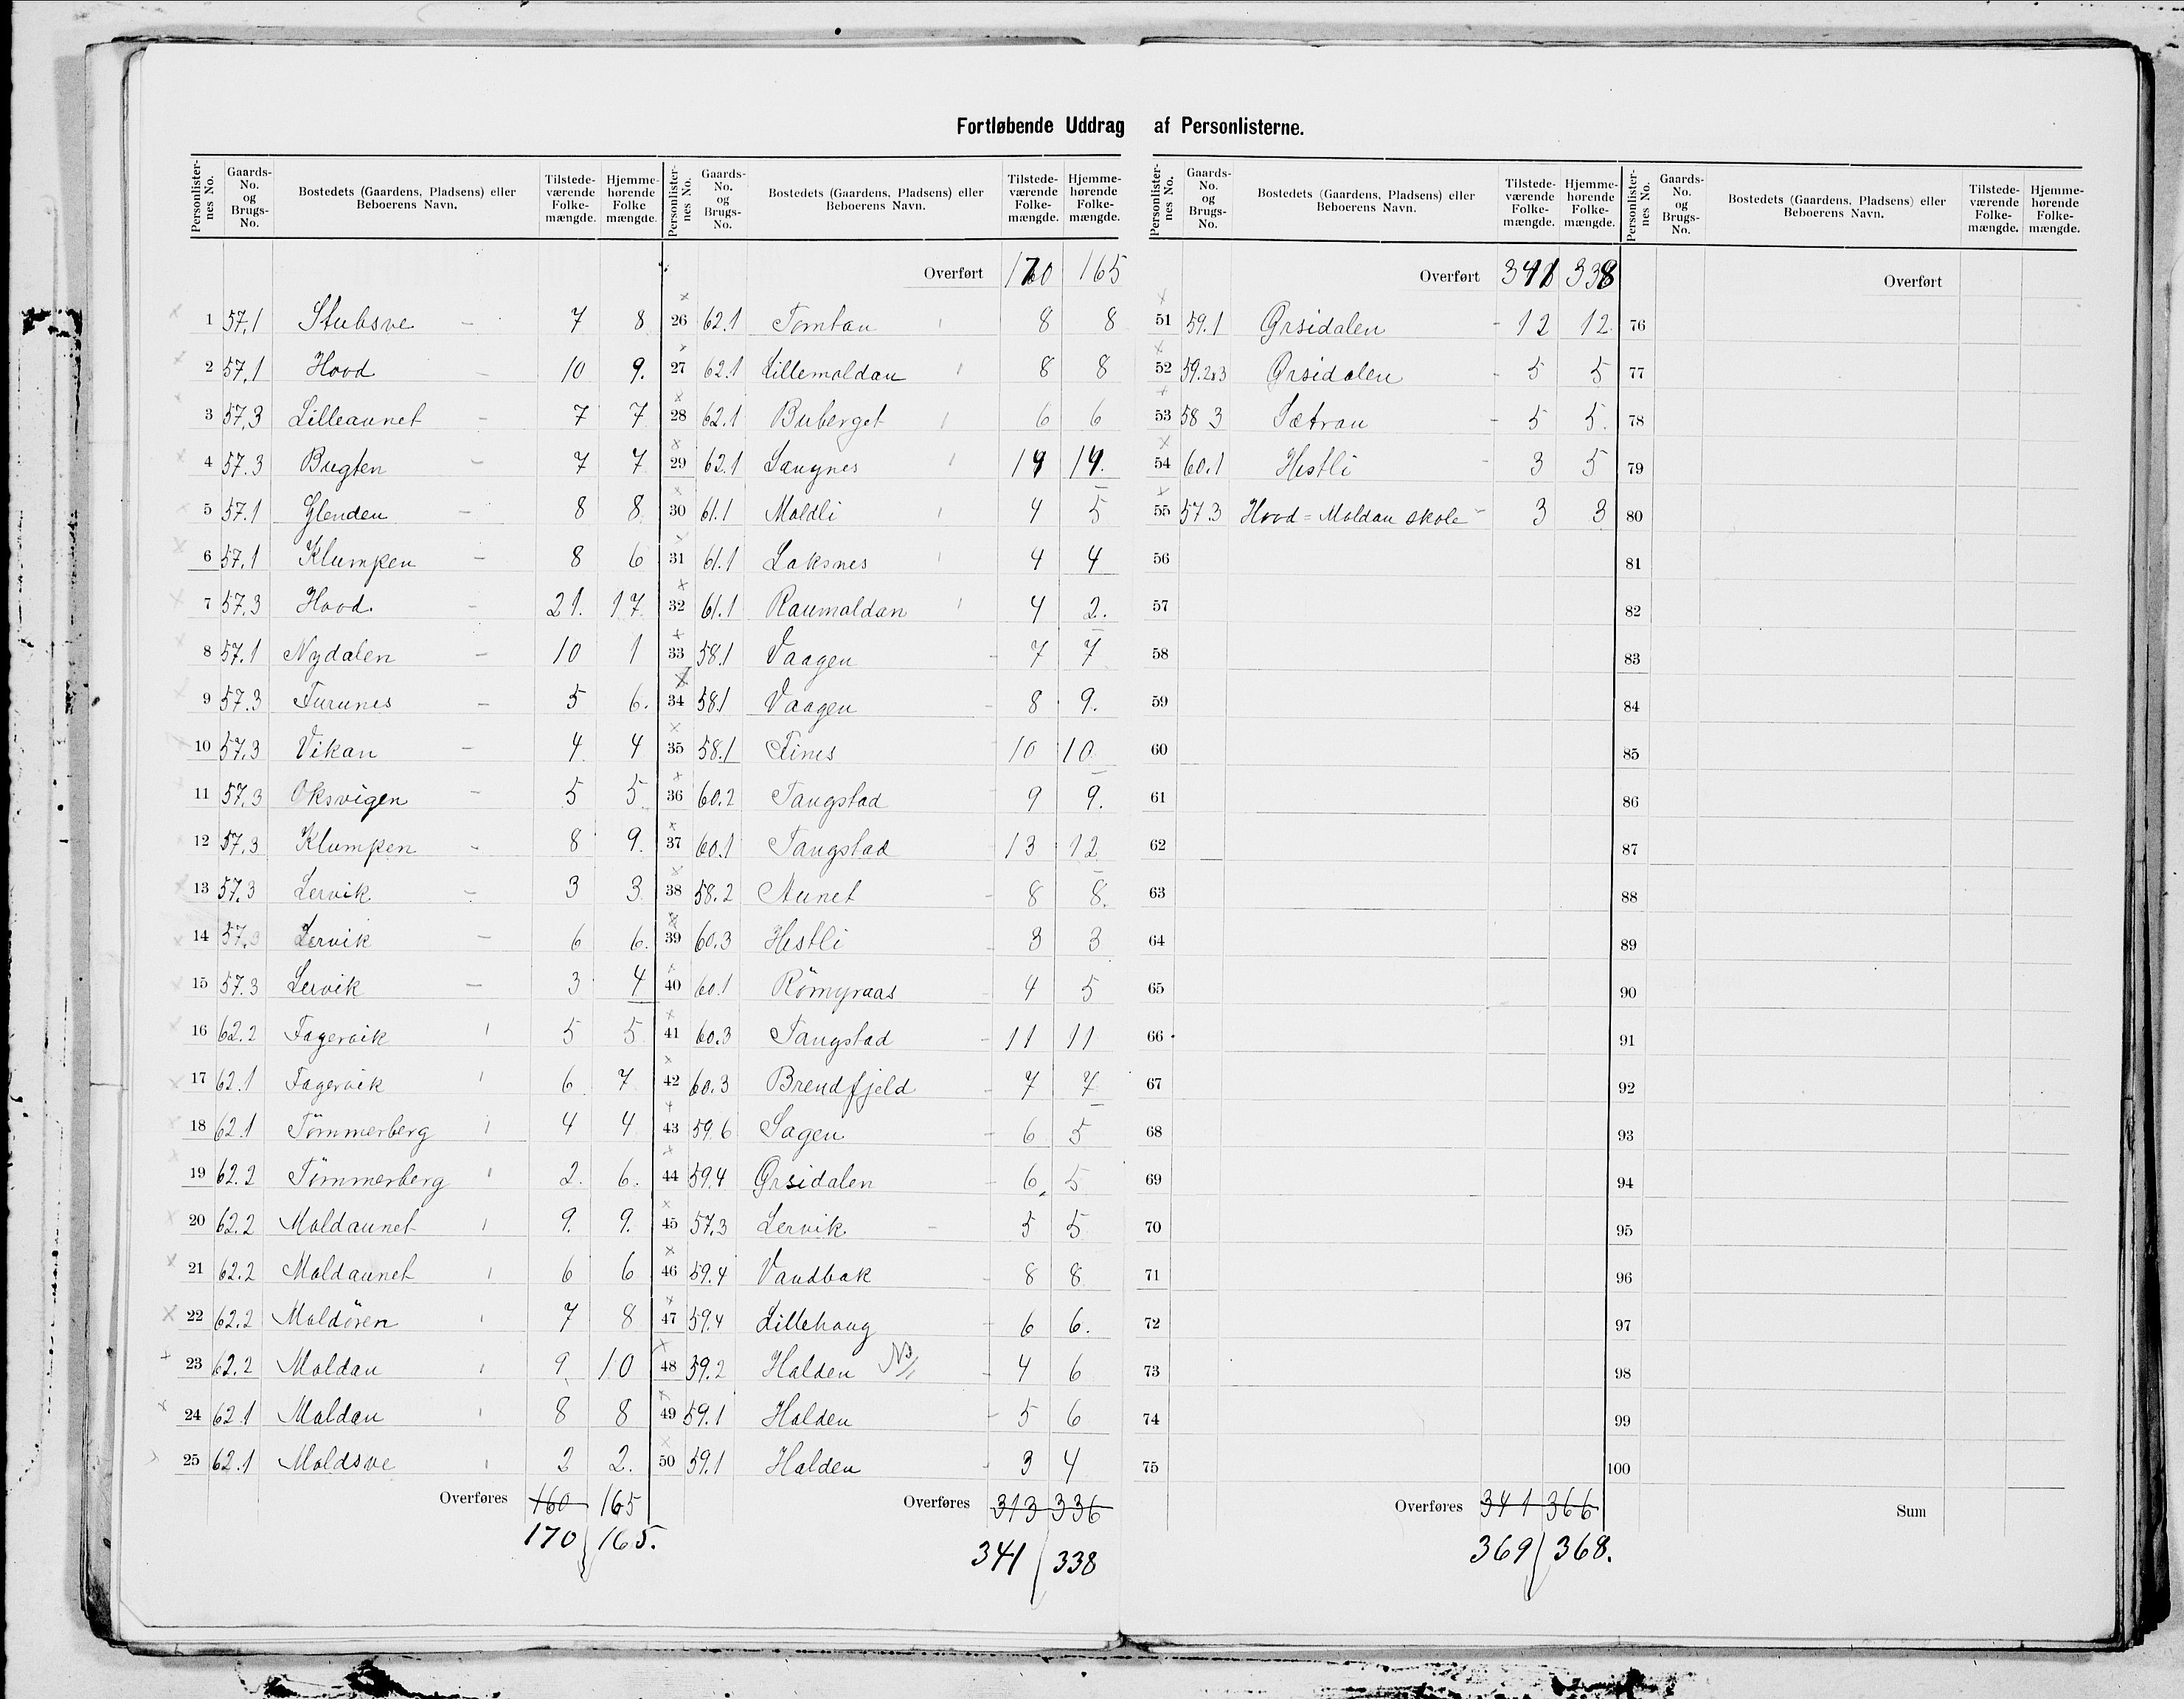 Fortløbende Uddrag af Personlisterne.
Personlisternes No. Gaards-No. og Brugs-No. Bostedets (Gaardens, Pladsens) eller Beboerens Navn. Tilstedeværende Folkemængde. Hjemmehørende Folkemængde.
1 57.1 Stubsve - 7 8
2 57.1 Hovd - 10 9.
3 57.3 Lilleaunet - 7 7
4 57.3 Bugten - 7 7
5 57.1 Glenden - 8 8
6 57.1 Klumpen - 8 6
7 57.3 Hovd. - 21. 17
8 57.1 Nydalen - 10 1
9 57.3 Furunes - 5 6.
10 57.3 Vikan - 4 4
11 57.3 Oksvigen - 5 5
12 57.3 Klumpen - 8 9.
13 57.3 Lervik - 3 3
14 57.3 Lervik - 6 6.
15 57.3 Lervik - 3 4
16 62.2 Fagervik 5 5
17 62.1 Fagervik 6 7
18 62.1 Tømmerberg 4 4
19 62.2 Tømmerberg 2. 6.
20 62.2 Moldaunet 9. 9.
21 62.2 Moldaunet 6 6
22 62.2 Moldören 7 8
23 62.2 Moldan 9 10
24 62.1 Moldan 8 8
25 62.1 Moldsve 2 2.
Overføres 160 165
170 165.
Personlisternes No. Gaards-No. og Brugs-No. Bostedets (Gaardens, Pladsens) eller Beboerens Navn. Tilstedeværende Folkemængde. Hjemmehørende Folkemængde.
Overført 170 165
26 62.1 Tomtan 8 8
27 62.1 Lillemoldan 8 8
28 62.1 Buberget 6 6
29 62.1 Langnes 14 14.
30 61.1 Moldli 4 5
31 61.1 Laksnes 4 4
32 61.1 Raumoldan 4 2.
33 58.1 Vaagen - 7 7
34 58.1 Vaagen - 8 9.
35 58.1 Fines 10 10
36 60.2 Tangstad 9 9.
37 60.1 Tangstad - 13 12
38 58.2 Aunet - 8 8.
39 60.3 Hestli - 3 3
40 60.1 Römyraas - 4 5
41 60.3 Tangstad - 11 11
42 60.3 Brendfjeld - 7 7
43 59.6 Sagen - 6 5
44 59.4 Ørsidalen - 6 5
45 57.3 Lervik - 5 5
46 59.4 Vandbak - 8 8
47 59.4 Lillehaug - 6 6.
48 59.2 Halden - 4 6
49 59.1 Halden - 5 6
50 59.1 Halden - 3 4
Overføres 313 336
341 338
Personlisternes No. Gaards-No. og Brugs-No. Bostedets (Gaardens, Pladsens) eller Beboerens Navn. Tilstedeværende Folkemængde. Hjemmehørende Folkemængde.
Overført 341 338
51 59.1 Ørsidalen - 12 12
52 59.2&3 Ørsidalen - 5 5
53 58 3 Sætran - 5 5.
54 60.1 Hestli - 3 5
55 57.3 Hovd = Moldan skole - 3 3
56
57
58
59
60
61
62
63
64
65
66
67
68
69
70
71
72
73
74
75
Overføres 341 366
369 368.
Personlisternes No. Gaards-No. og Brugs-No. Bostedets (Gaardens, Pladsens) eller Beboerens Navn. Tilstedeværende Folkemængde. Hjemmehørende Folkemængde.
Overført
76
77
78
79
80
81
82
83
84
85
86
87
88
89
90
91
92
93
94
95
96
97
98
99
100
Sum